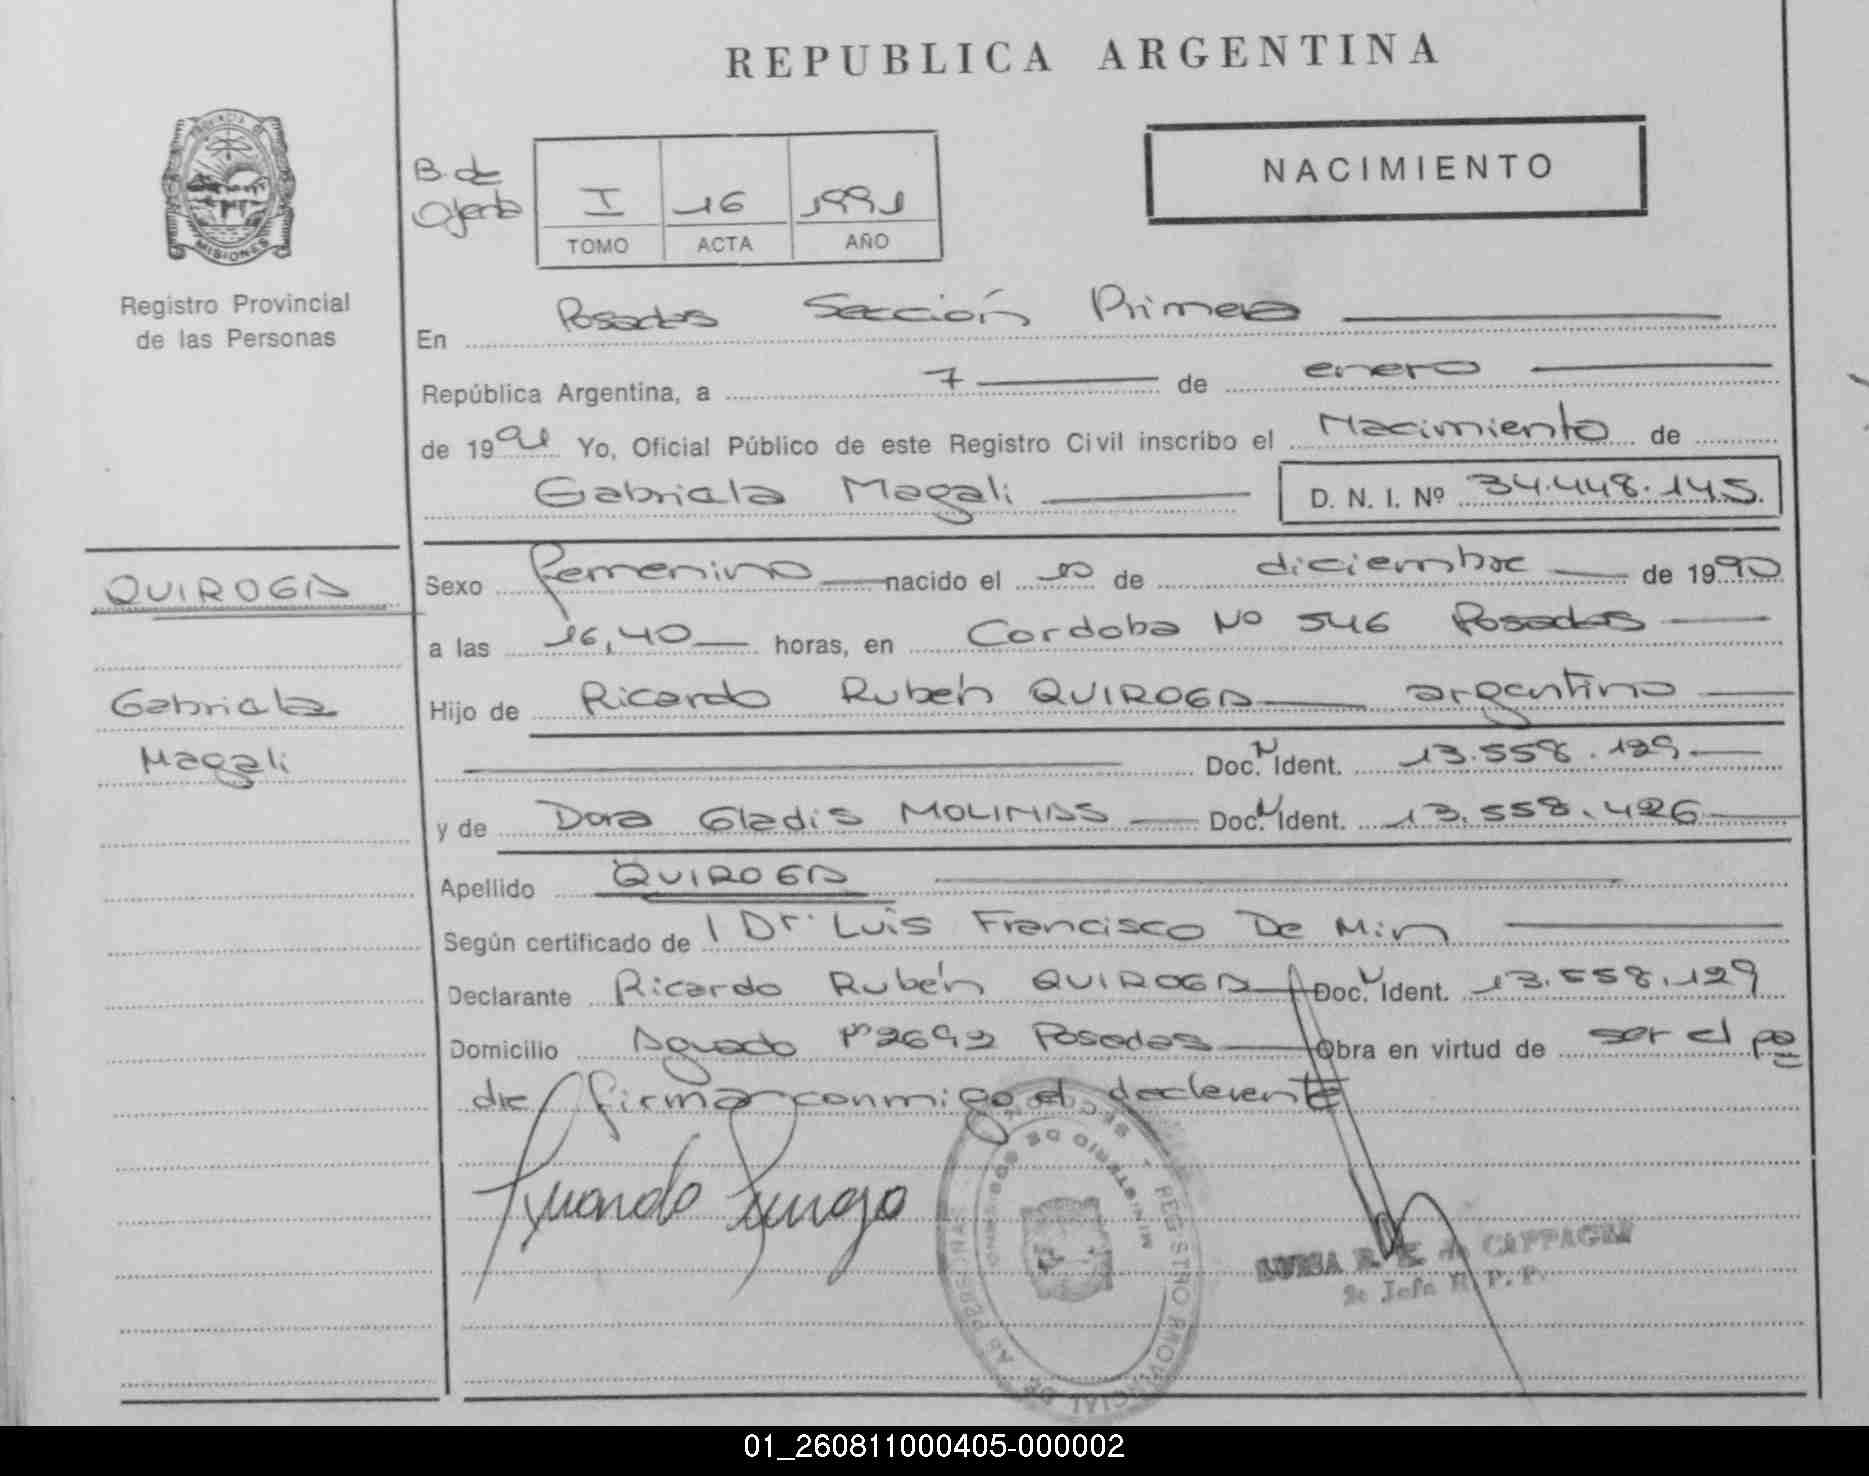 REPUBLICA ARGENTINA
PROVINCIA DE
MISIONES
Registro Provincial
de las Personas
B. de
I 16 1991
TOMO ACTA AÑO
NACIMIENTO
En Posadas Sección Primera
República Argentina, a 7 de enero
de 1991 Yo, Oficial Público de este Registro Civil inscribo el Nacimiento de
Gabriela Magali D. N. I. Nº 34.448.145.
QUIROGA
Gabriela
Magali
Sexo femenino nacido el 10 de diciembre de 1990
a las 16,40 horas, en Cordoba Nº 546 Posadas
Hijo de Ricardo Rubén QUIROGA argentino
Doc. N Ident. 13.558.129
y de Dora Gladis MOLINAS Doc. N Ident. 13.558.426
Apellido QUIROGA
Según certificado de Dr. Luis Francisco De Min
Declarante Ricardo Rubén QUIROGA Doc. N Ident. 13.558.129
Domicilio Aguado Nº 2692 Posadas Obra en virtud de ser el pa
dre firma conmigo el declarante
MINISTERIO DE GOBIERNO
REGISTRO PROVINCIAL DE LAS PERSONAS
LUISA R. de
Jefa R. P. P.
01_260811000405-000002